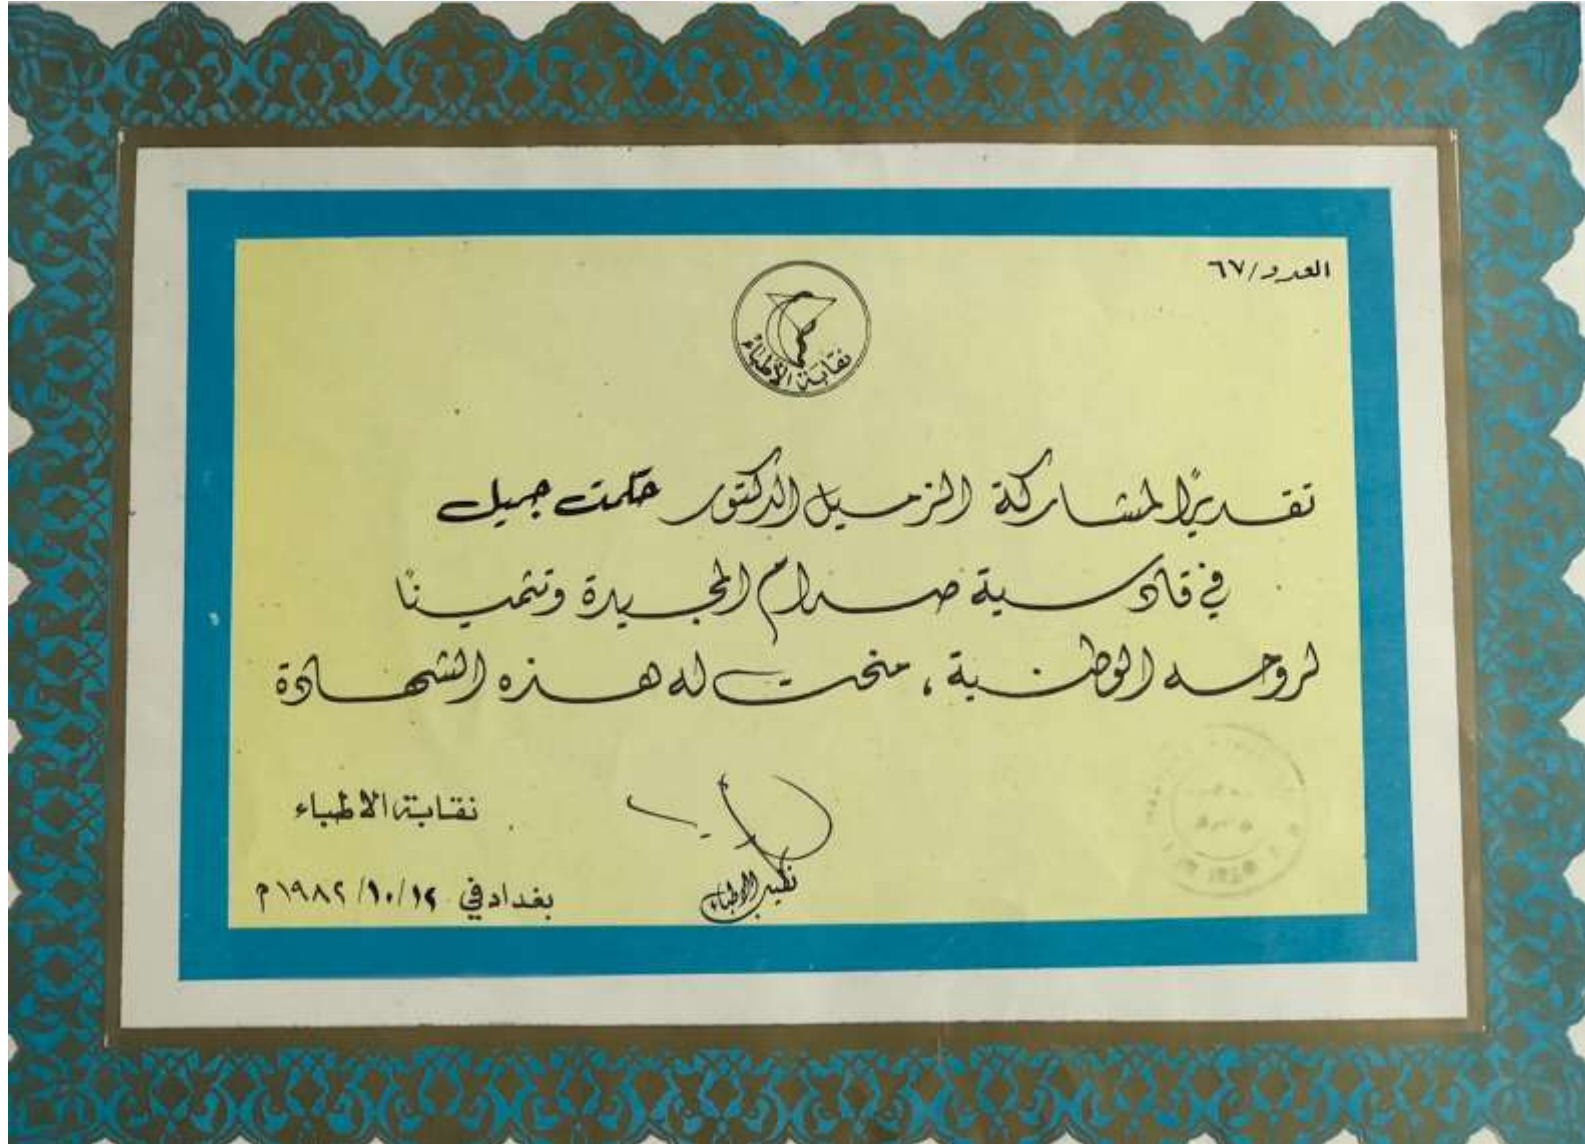 العدد/٦٧
نقابة الأطباء
تقديرًا لمشاركة الزميل الدكتور حكمت جميل
في قادسية صدام المجيدة وتثمينًا
لروحه الوطنية، منحت له هذه الشهادة
نقابة الاطباء
نقيب الاطباء
بغداد في ١٩٨٢/١٠/١٢م